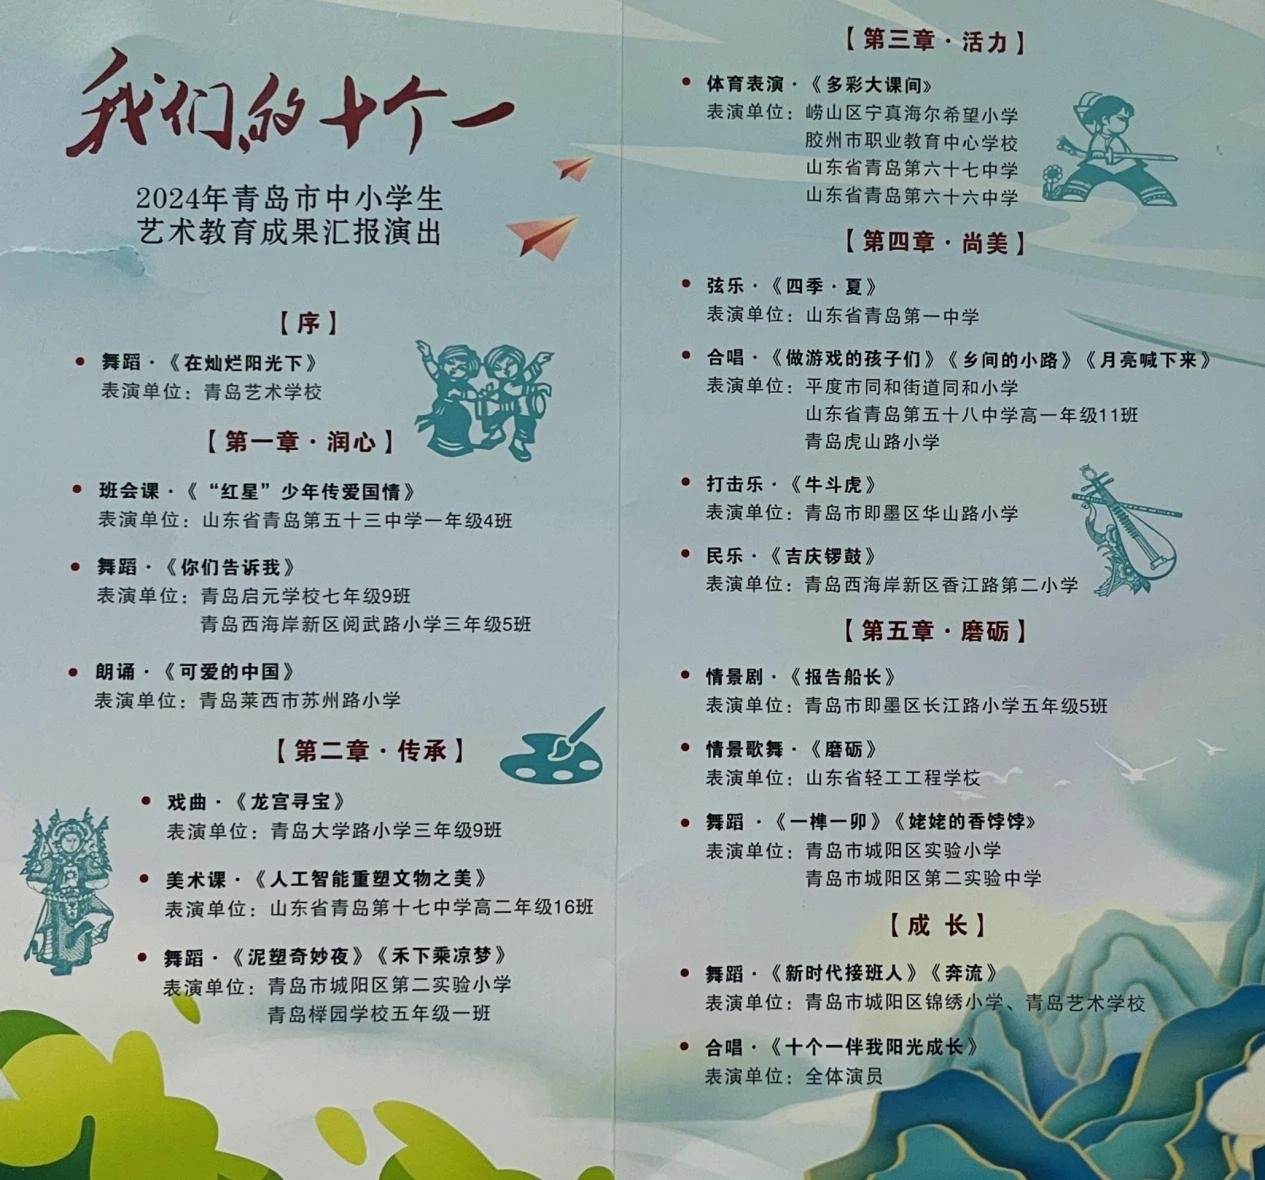 我们的十个一
2024年青岛市中小学生
艺术教育成果汇报演出
【序】
• 舞蹈·《在灿烂阳光下》
表演单位：青岛艺术学校
【第一章·润心】
• 班会课·《“红星”少年传爱国情》
表演单位：山东省青岛第五十三中学一年级4班
• 舞蹈·《你们告诉我》
表演单位：青岛启元学校七年级9班
青岛西海岸新区阅武路小学三年级5班
• 朗诵·《可爱的中国》
表演单位：青岛莱西市苏州路小学
【第二章·传承】
• 戏曲·《龙宫寻宝》
表演单位：青岛大学路小学三年级9班
• 美术课·《人工智能重塑文物之美》
表演单位：山东省青岛第十七中学高二年级16班
• 舞蹈·《泥塑奇妙夜》《禾下乘凉梦》
表演单位：青岛市城阳区第二实验小学
青岛榉园学校五年级一班
【第三章·活力】
• 体育表演·《多彩大课间》
表演单位：崂山区宁真海尔希望小学
胶州市职业教育中心学校
山东省青岛第六十七中学
山东省青岛第六十六中学
【第四章·尚美】
• 弦乐·《四季·夏》
表演单位：山东省青岛第一中学
• 合唱·《做游戏的孩子们》《乡间的小路》《月亮喊下来》
表演单位：平度市同和街道同和小学
山东省青岛第五十八中学高一年级11班
青岛虎山路小学
• 打击乐·《牛斗虎》
表演单位：青岛市即墨区华山路小学
• 民乐·《吉庆锣鼓》
表演单位：青岛西海岸新区香江路第二小学
【第五章·磨砺】
• 情景剧·《报告船长》
表演单位：青岛市即墨区长江路小学五年级5班
• 情景歌舞·《磨砺》
表演单位：山东省轻工工程学校
• 舞蹈·《一榫一卯》《姥姥的香饽饽》
表演单位：青岛市城阳区实验小学
青岛市城阳区第二实验中学
【成 长】
• 舞蹈·《新时代接班人》《奔流》
表演单位：青岛市城阳区锦绣小学、青岛艺术学校
• 合唱·《十个一伴我阳光成长》
表演单位：全体演员